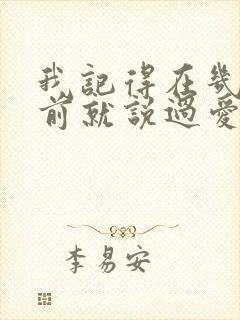 我記得在幾
前就説過愛
李易安